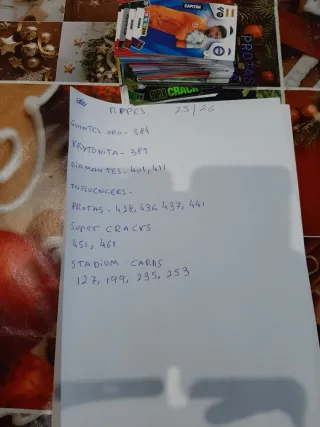 CAPITÁN
PROTAS
CRACK
REPES 25/26
GUANTES ORO - 384
KRYTONITA - 389
DIAMANTES - 401, 411
INFLUENCERS -
PROTAS - 428, 436 437, 441
SUPER CRACKS
451, 461
STADIUM CARDS
127, 199, 235, 253